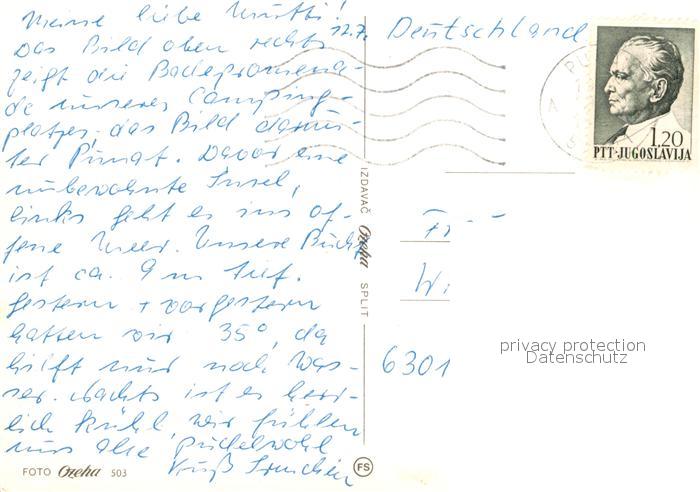 Meine liebe Mutti!
12.7.
Das Bild oben rechts
zeigt die Badepromena-
de unseres Camping-
platzes, das Bild darun-
ter Pimat. Davor eine
unbewohnte Insel,
links geht es ins of-
fene Meer. Unsere Bucht
ist ca. 9 m tief.
Gestern + vorgestern
hatten wir 35°, da
hilft nur noch Was-
ser. Nachts ist es herr-
lich kühl, wir fühlen
uns alle pudelwohl
Kuß
FOTO Ozeha 503
IZDAVAČ Ozeha SPLIT
FS
Deutschland
PU
1.20
PTT-JUGOSLAVIJA
Fr
Wi
6301
privacy protection
Datenschutz